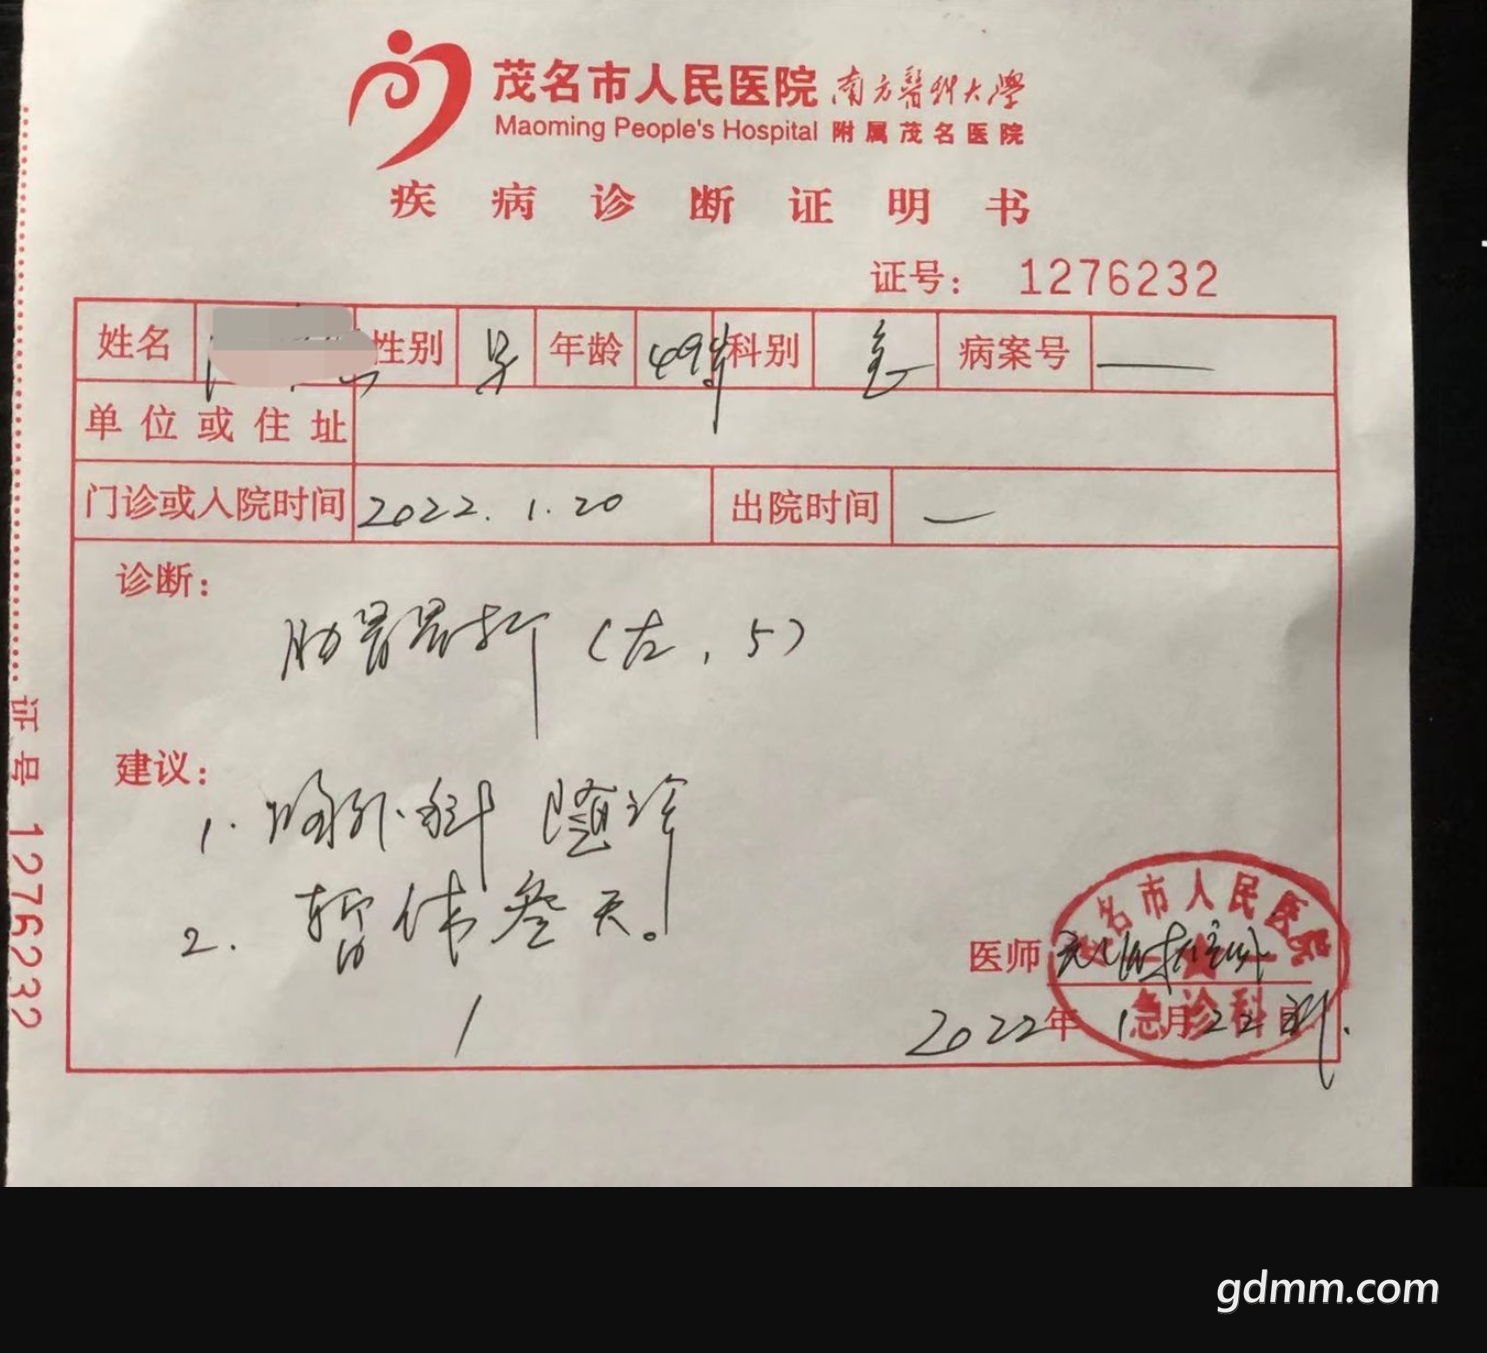 茂名市人民医院 南方醫科大學
Maoming People's Hospital 附属茂名医院
疾病诊断证明书
证号： 1276232
姓名 性别 男 年龄 49岁 科别 急 病案号 —
单位或住址
门诊或入院时间 2022.1.20 出院时间 —
诊断：
肋骨骨折（左，5）
建议：
1. 胸外科 随诊
2. 暂休叁天。
医师
2022年 1月22日
茂名市人民医院
急诊科
证号 1276232
gdmm.com